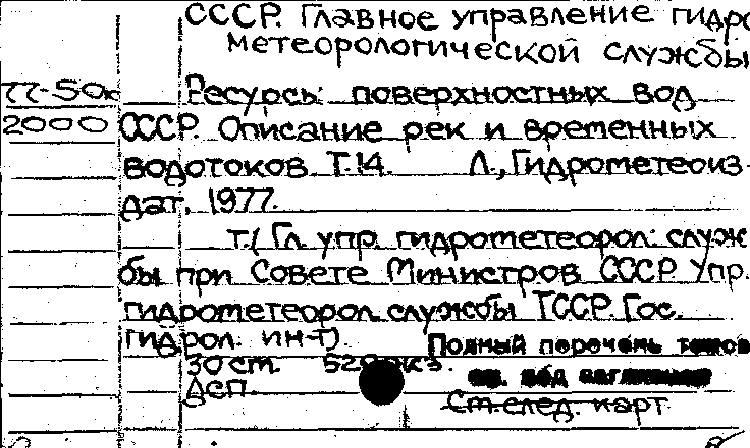 СССР. Главное управление гидро
метеорологической службы
77-50к Ресурсы поверхностных вод
2000 СССР. Описание рек и временных
водотоков Т.14. Л., Гидрометеоиз-
дат, 1977.
т. (Гл. упр. гидрометеорол. служ
бы при Совете Министров СССР Упр.
гидрометеорол. службы ТССР. Гос.
гидрол. ин-т).
Полный перечень томов
30 ст. 528 экз.
см. под заглавием
ДСП.
См. след. карт